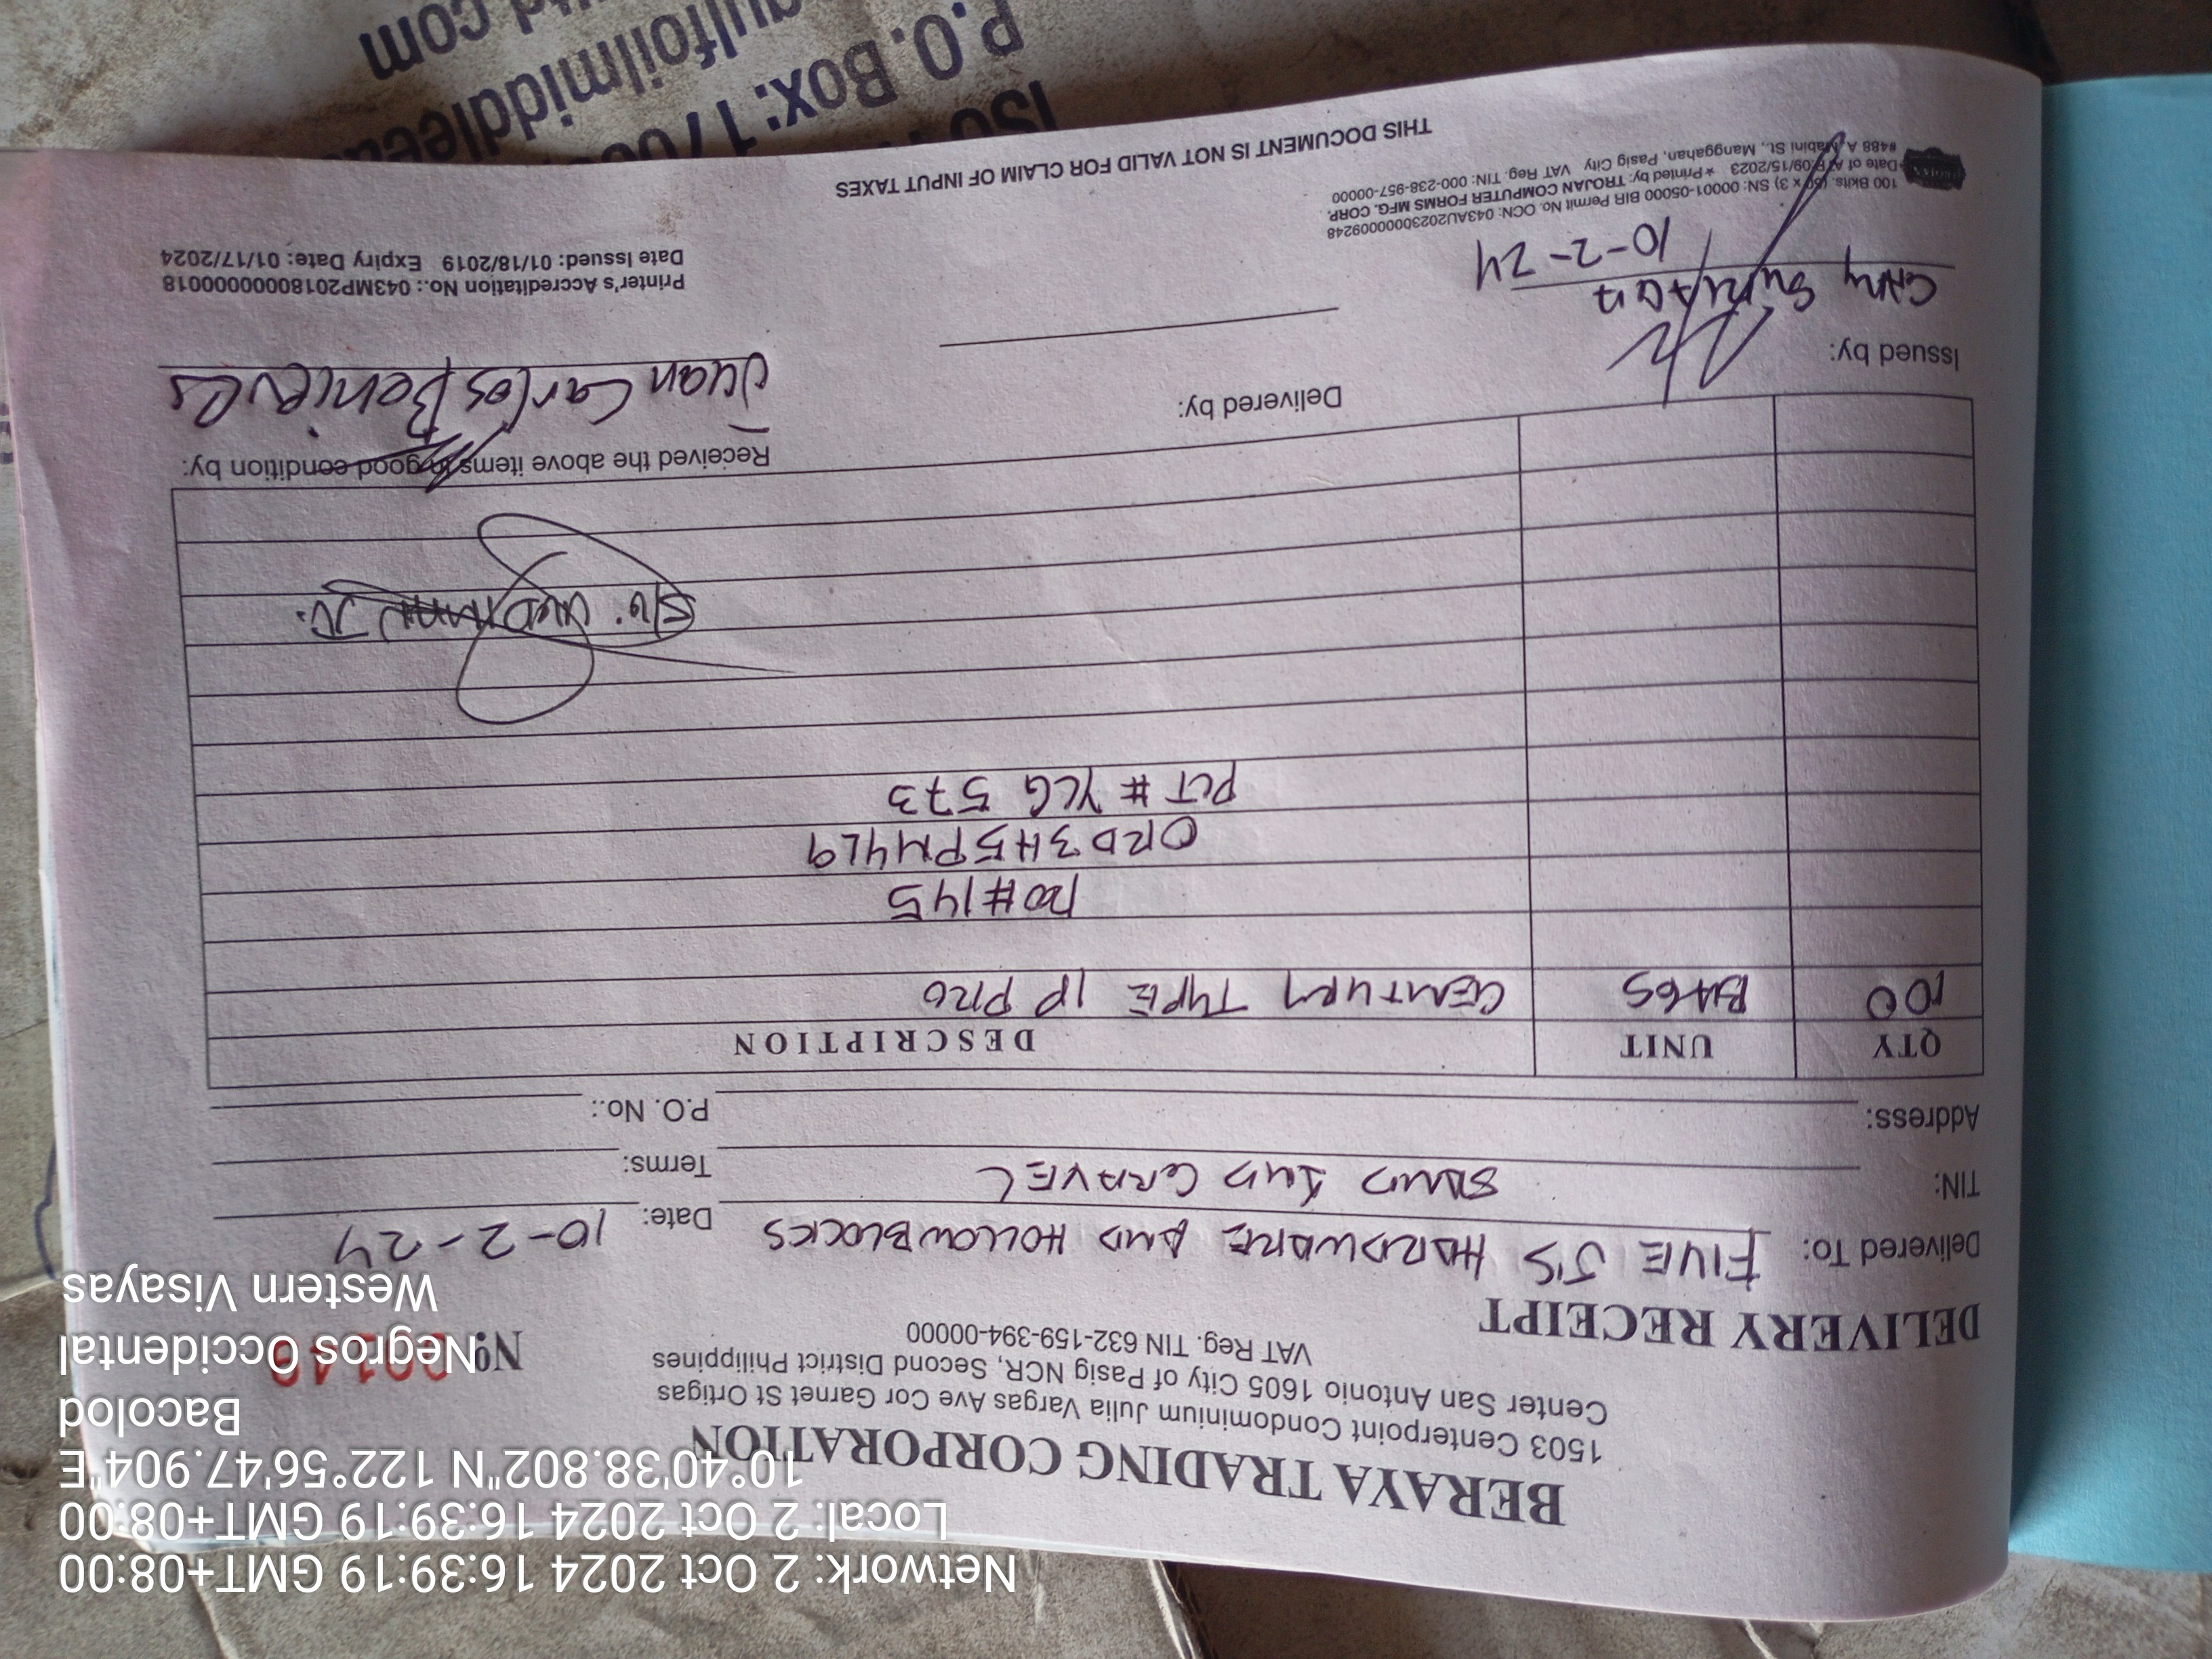 BERAYA TRADING CORPORATION
1503 Centerpoint Condominium Julia Vargas Ave Cor Garnet St Ortigas
Center San Antonio 1605 City of Pasig NCR, Second District Philippines
VAT Reg. TIN 632-159-394-00000
DELIVERY RECEIPT
Nº
Delivered To: FIVE J'S HARDWARE AND HOLLOWBLOCKS
Date: 10-2-24
TIN: SAND AND GRAVEL
Terms:
Address:
P.O. No.:
QTY UNIT DESCRIPTION
100 BAGS CENTURY TYPE 1P PRO
PO#145
ORD3H5PM4L9
PLT # YLG 573
JR.
Issued by:
Delivered by:
Received the above items in good condition by:
GARY
10-2-24
Juan Carlos Benieves
100 Bkits. (50 x 3) SN: 00001-05000 BIR Permit No. OCN: 043AU20230000009248
Date of ATP:09/15/2023 * Printed by: TROJAN COMPUTER FORMS MFG. CORP.
#488 A. Mabini St., Manggahan, Pasig City VAT Reg. TIN: 000-238-957-00000
Printer's Accreditation No.: 043MP20180000000018
Date Issued: 01/18/2019 Expiry Date: 01/17/2024
THIS DOCUMENT IS NOT VALID FOR CLAIM OF INPUT TAXES
P.O. Box:
Network: 2 Oct 2024 16:39:19 GMT+08:00
Local: 2 Oct 2024 16:39:19 GMT+08:00
10°40'38.802"N 122°56'47.904"E
Bacolod
Negros Occidental
Western Visayas